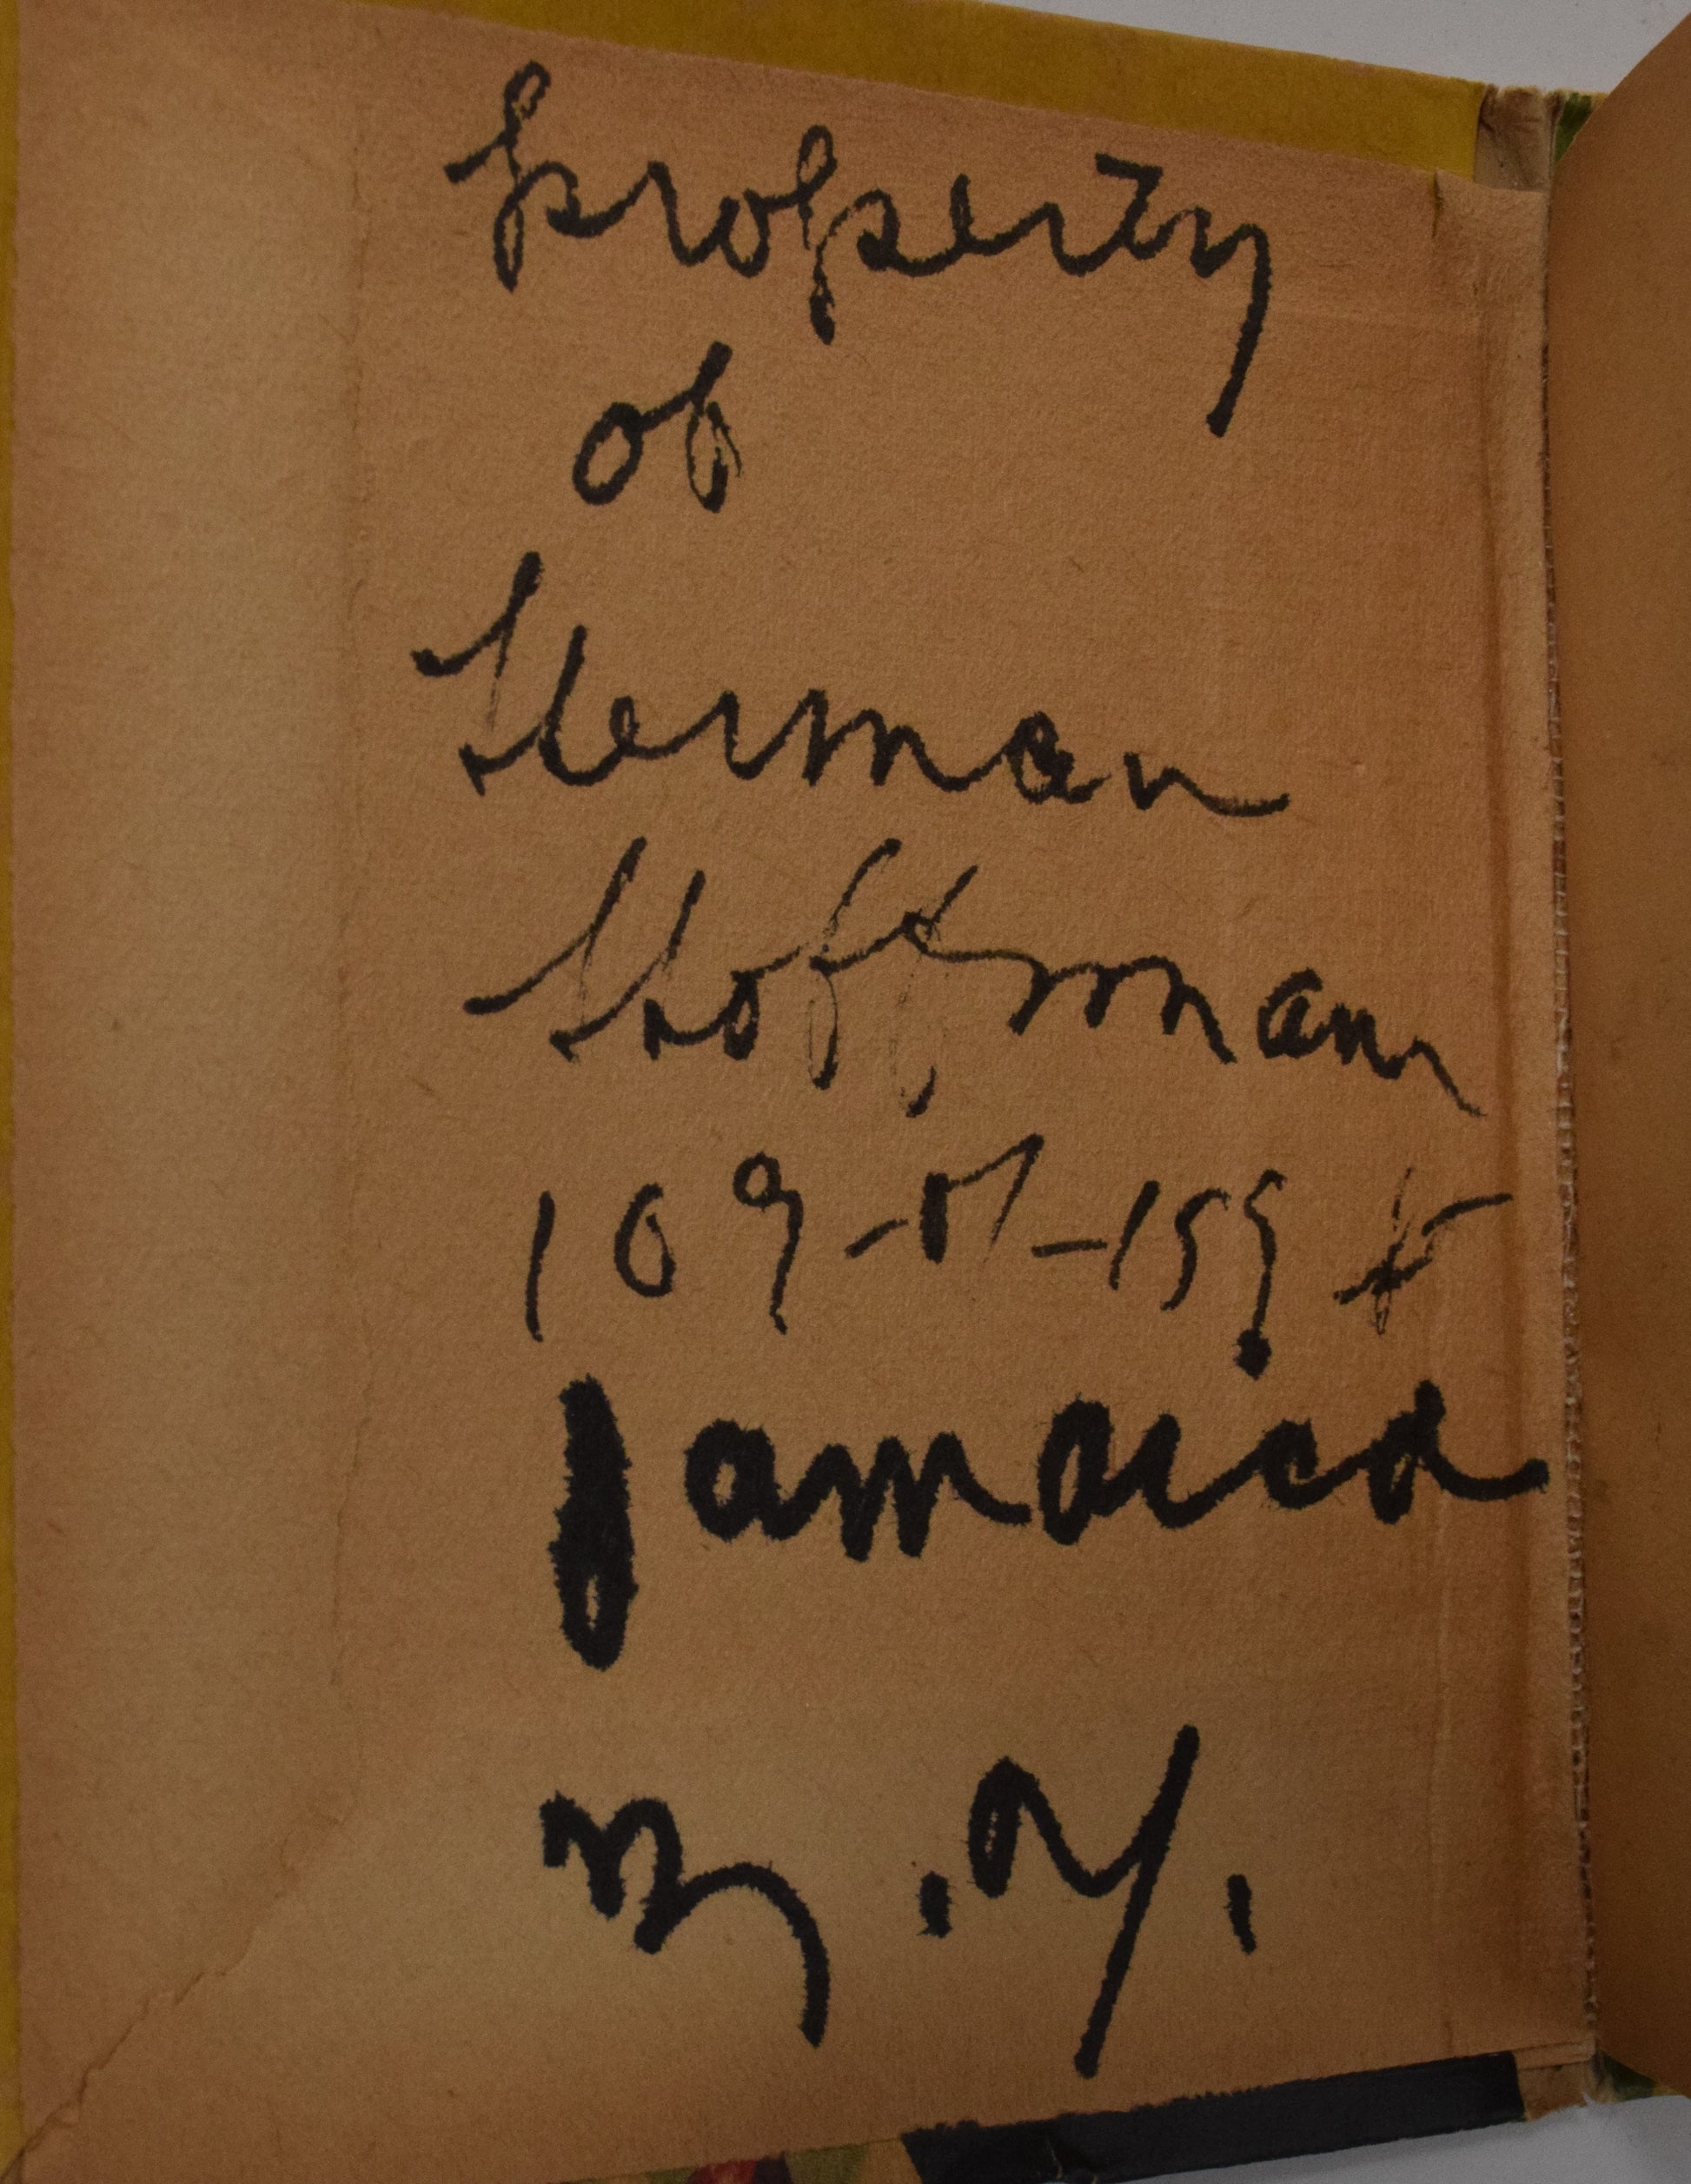 property
of
Herman
Hoffmann
109-01-159 St
Jamaica
N.Y.